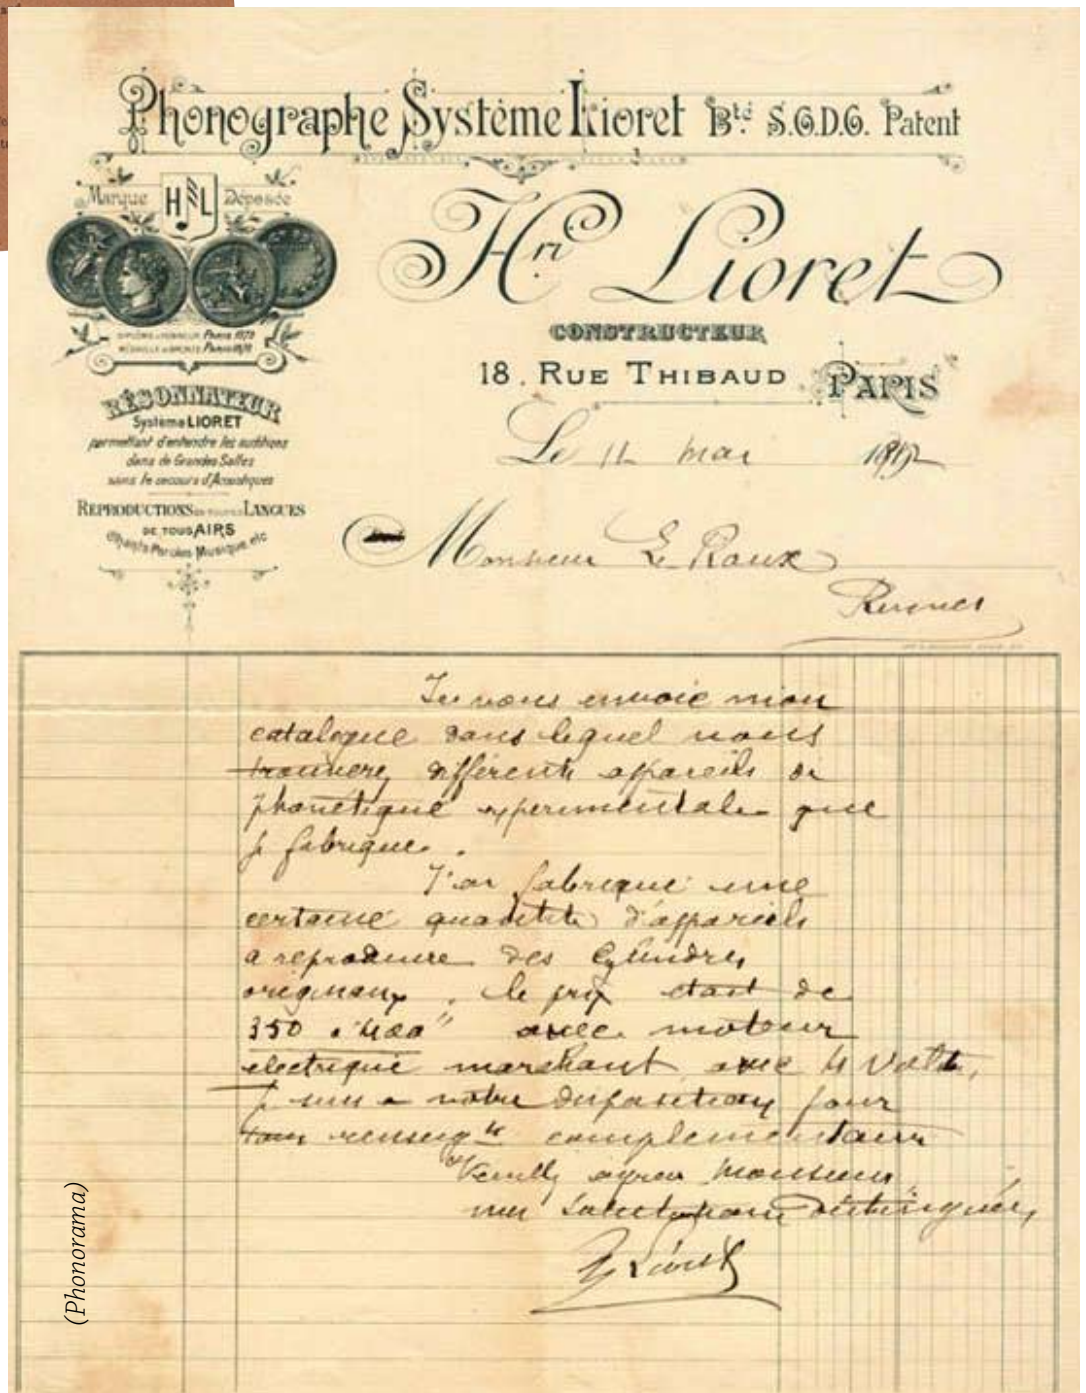 Phonographe Système Lioret Bté S.G.D.G. Patent
Marque HL Déposée
Hri Lioret
CONSTRUCTEUR
18. RUE THIBAUD PARIS
PARIS 1878
RÉSONNATEUR
Système LIORET
permettant d'entendre les auditions
dans de Grandes Salles
sans le secours d'Acoustiques
REPRODUCTIONS EN TOUTES LANGUES
DE TOUS AIRS
Chants Paroles Musique, etc
Le 11 mai
Monsieur Le Roux
Rennes
Je vous envoie mon
catalogue dans lequel vous
trouverez différents appareils de
phonétique experimentale que
je fabrique.
J'ai fabriqué une
certaine quantité d'appareils
a reproduire des cylindres
originaux. le prix étant de
350 à 400" avec moteur
electrique marchant avec 4 Volts,
Je suis a votre disposition pour
tous renseigts complementaires
Veuillez agréer Monsieur
mes salutations distinguées,
Lioret
(Phonorama)